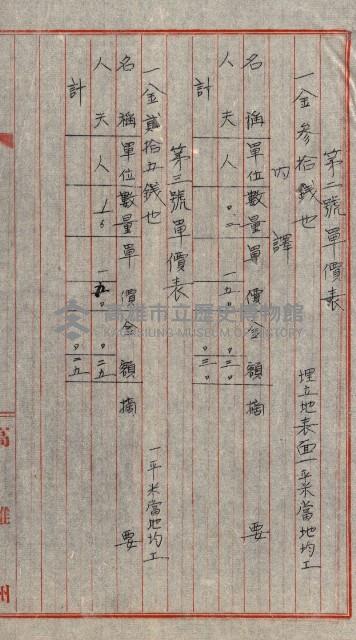 第二號單價表
一金参拾銭也 埋立地表面一平米當地均工
内譯
名稱 單位 數量 單價 金額 摘要
人夫 人 〇.二 一.五〇 〇.三〇
計 〇.三〇
第三號單價表
一金貳拾五銭也 一平米當地均工
名稱 單位 數量 單價 金額 摘要
人夫 人 〇.二五
計 〇.二五
高雄市立歷史博物館
KAOHSIUNG MUSEUM OF HISTORY
高雄州